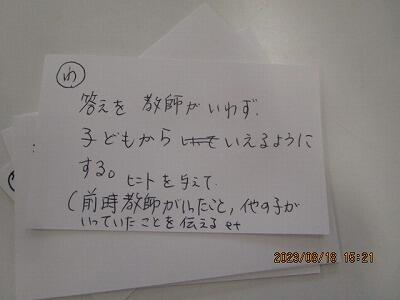 わ
答えを 教師がいわず、
子どもから いえるように
する。 ヒントを与えて
(前時教師がいったこと, 他の子が
いっていたことを伝える et
2023/08/18 15:21